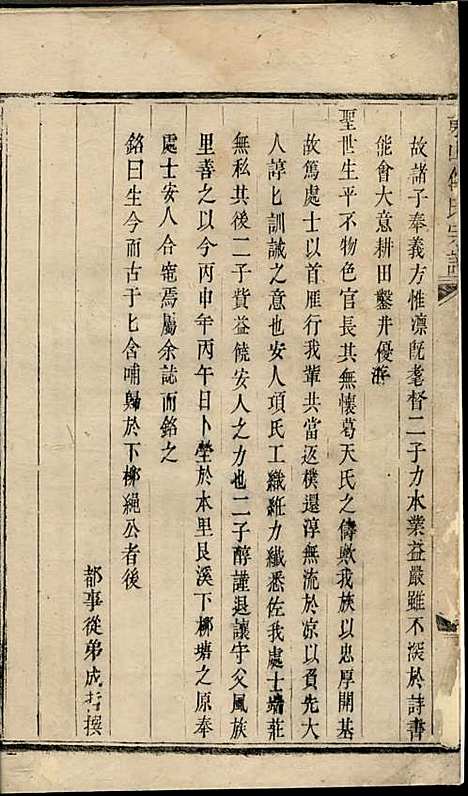 故諸子奉義方惟凜既耄督二子力本業益嚴雖不深於詩書
能會大意耕田鑿井優游
聖世生平不物色官長其無懷葛天氏之儔歟我族以忠厚開基
故篤處士以首雁行我軰共當返樸還淳無流於凉以負先大
人諄匕訓誡之意也安人項氏工織紝力纖悉佐我處士端莊
無私其後二子貲益饒安人之力也二子醇謹退讓守父風族
里善之以今丙申年丙午日卜塋於本里艮溪下柳塘之原奉
處士安人合窀焉屬余誌而銘之
銘曰生今而古于匕含哺歸於下柳繩公者後
都事從弟成哲撰
氏宗譜